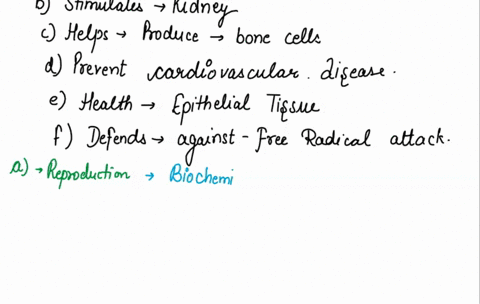 b) Stimulates → Kidney
c) Helps → Produce → bone cells
d) Prevent cardiovascular. disease.
e) Health → Epithelial Tissue
f) Defends → against - Free Radical attack.
a) → Reproduction → Biochemi